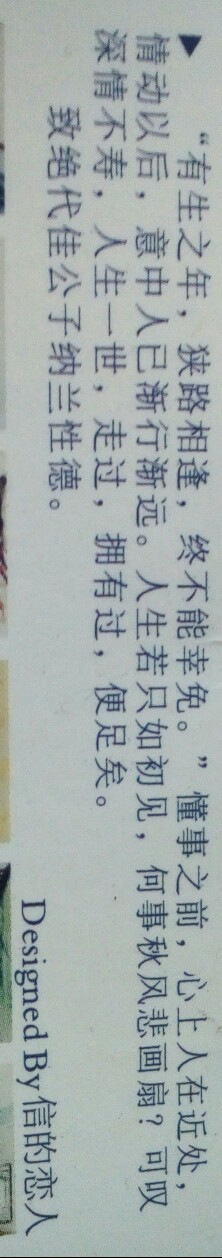 ▶ “有生之年，狭路相逢，终不能幸免。”懂事之前，心上人在近处，
情动以后，意中人已渐行渐远。人生若只如初见，何事秋风悲画扇？可叹
深情不寿，人生一世，走过，拥有过，便足矣。
致绝代佳公子纳兰性德。
Designed By信的恋人